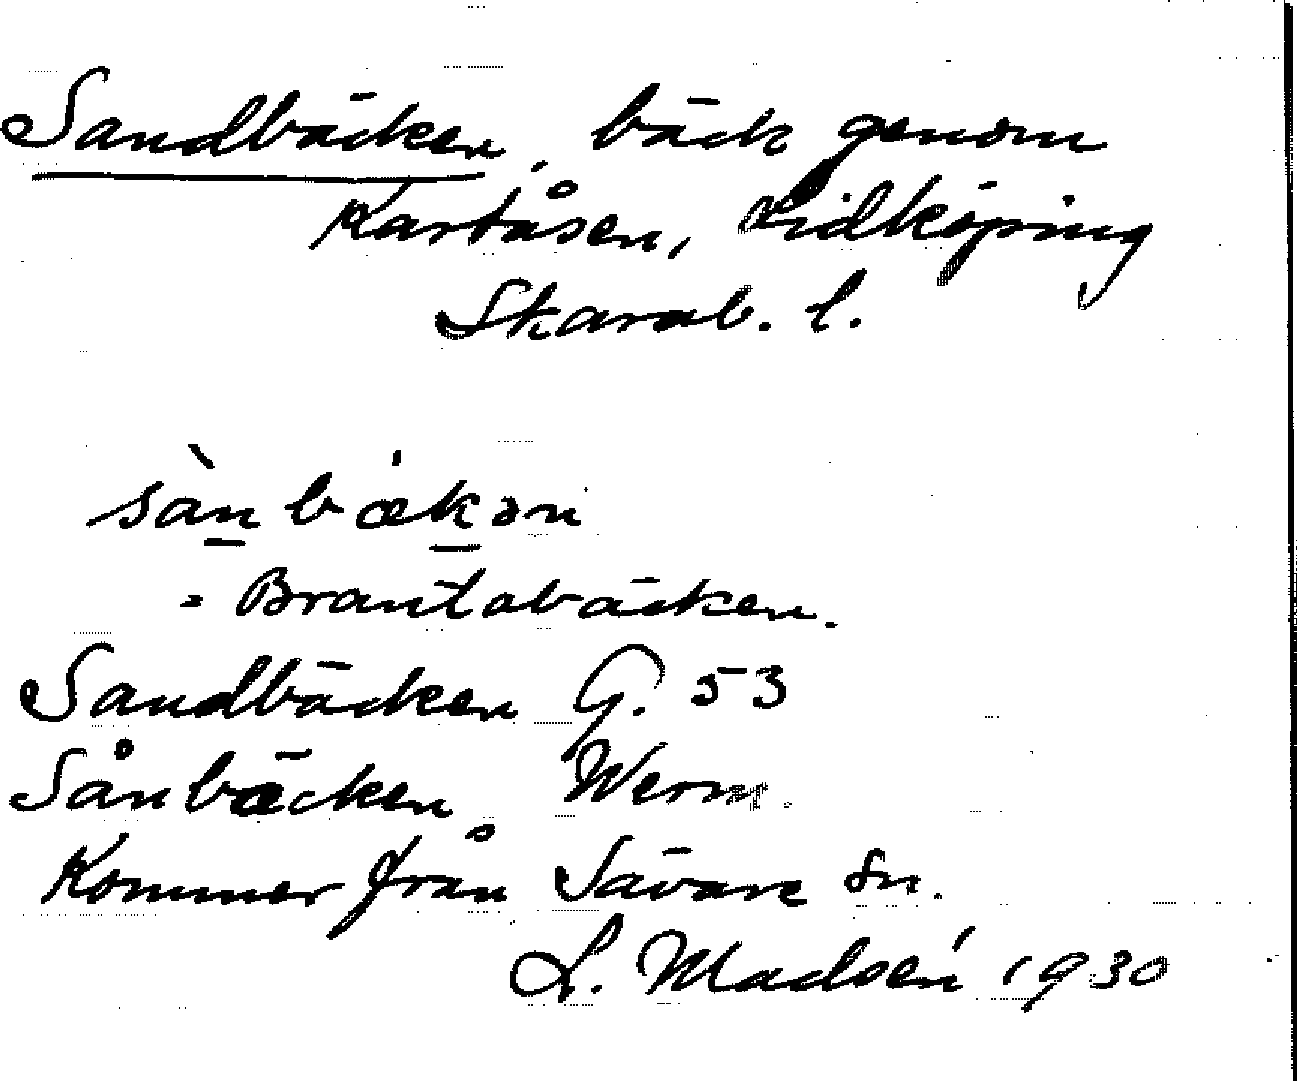 Sandbäcken, bäck genom
Kartåsen, Lidköping
Skarab. l.
sànbækən
= Brantabäcken.
Sandbäcken G. 53
Sånbäcken Werm.
Kommer från Sävare sn.
L. Madsén 1930